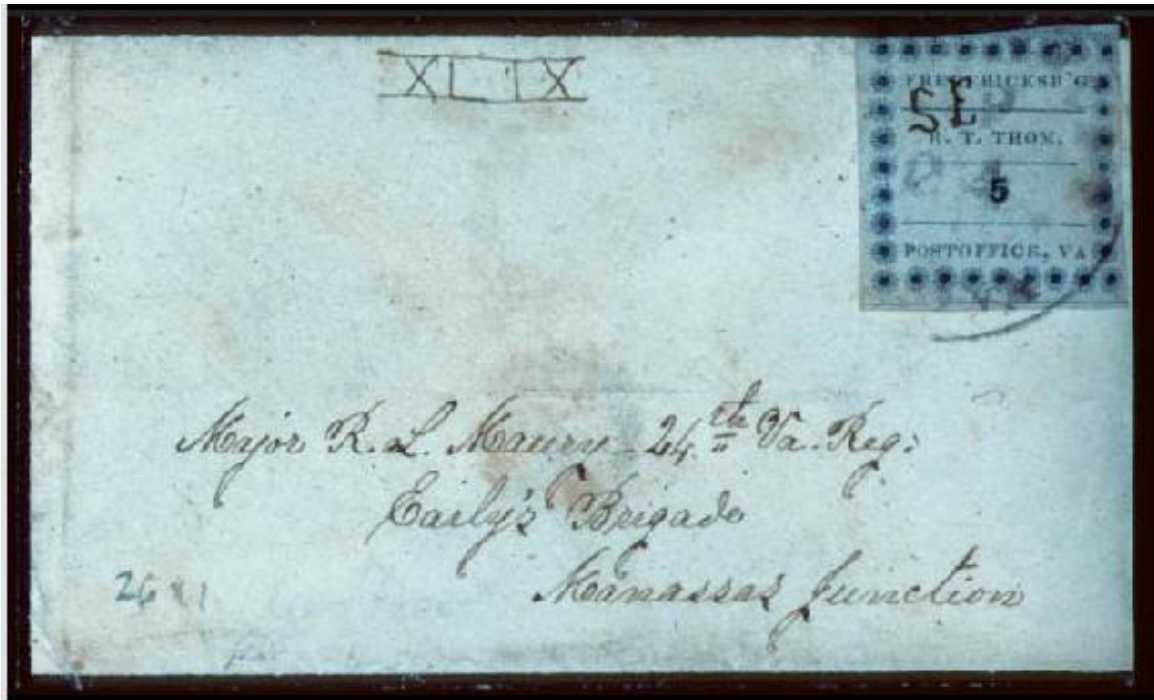 XLIX
FREDERICKSB'G
SE
R. T. THOM.
5
POSTOFFICE, VA
Major R. L. Maury 24th Va. Reg:
Early's Brigade
Manassas Junction